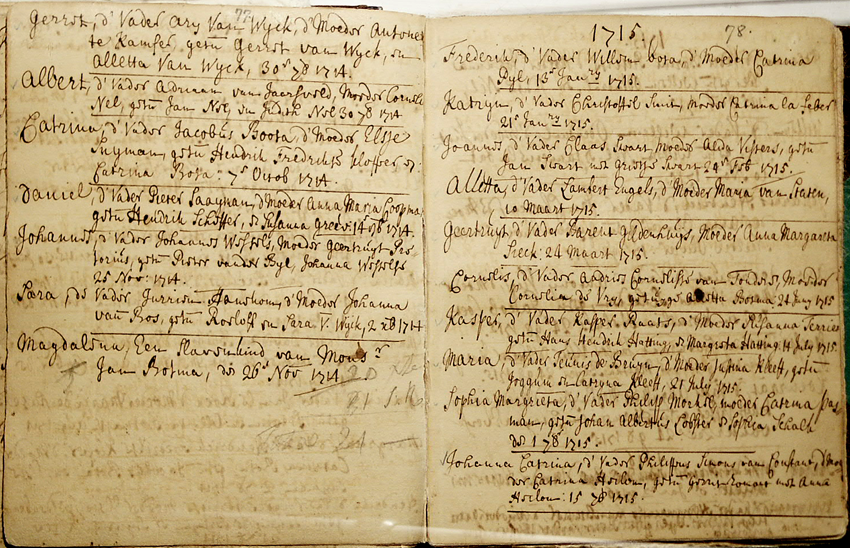 77.
Gerrot, d' Vader Ary van Wyck, d' Moeder Antonet
te Kamfer, getu Gerrot van Wyck, en
Alletta Van Wyck, 30 7ß 1714.
Albert, d' Vader Adriaan van Jaarsveld, Moeder Corneli
Nel, getu Jan Nel, en Judith Nel 30 7ß 1714
Catrina, d' Vader Jacobus Boota, d' Moeder Elsje
Snyman, getu Hendrik Fredrik
Catrina Bota: 7 Octob 1714.
Daniel, d' Vader Pieter Saayman, d' Moeder Anna Maria Koopma
getu Hendrik Schoffer, Susanna 14 1714.
Johannes, d' Vader Johannes Wessels, Moeder geertruyt Pre
torius, getu Pieter vander Byl, Johanna Wessels
25 Nov: 1714.
Sara, de Vader Jurrien Hanekom, d' Moeder Johanna
van Bos, getu Roeloff en Sara V. Wyck, 2 1714
Magdalena, Een Slavenkind van Mons r
Jan Botma, 26 Nov 1714
1715. 78.
Frederik, d' Vader Willem bota, d' Moeder Catrina
Pyl, 13 Jan ry 1715.
Katryn, d' Vader Christoffel Smit, Moeder Catrina la Febre
21 Jan ry 1715.
Joannes, d' Vader Claas Swart Moeder Alida Vissers, getu
Jan Swart met Swart 24 Feb 1715.
Alletta, d' Vader Lambert Engels, d' Moeder Maria van Staten,
10 Maart 1715.
Geertruyt, d' Vader Barent Gildenhuys, Moeder Anna Margareta
Sieck: 24 Maart 1715.
Cornelis, d' Vader Andries Cornelisse van Tonder, Moeder
Cornelia de Vry, getuyge Aletta Botma 1715
Kasper, d' Vader Kasper Raats, d' Moeder Susanna
getu Hans Hendrik Hatting, Margreta Hatting 14 July 1715.
Maria, d' Vader Teunis de Bruyn, d' Moeder Justina Kleeft, getu
Joachim en Catryna Kleeft, 21 July 1715.
Sophia Margrieta, d' Vader Philip Morkel, moeder Catrina Pas
man, getu Johan Albertus en Sophia Schalk
1 7ß 1715.
Johanna Catrina, d' Vader Philippus Simons van Constant, d' Moe
der Catrina Heilon, getu met Anna
Heilon: 15 1715.